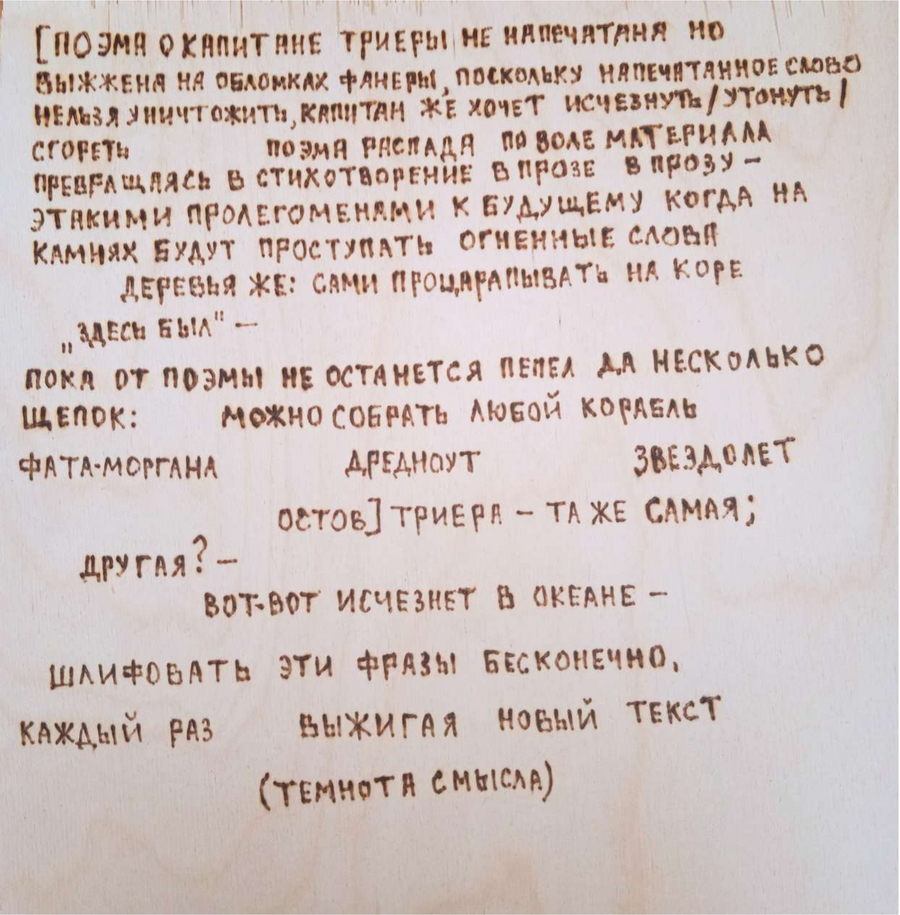 [ПОЭМА О КАПИТАНЕ ТРИЕРЫ НЕ НАПЕЧАТАНА НО
ВЫЖЖЕНА НА ОБЛОМКАХ ФАНЕРЫ, ПОСКОЛЬКУ НАПЕЧАТАННОЕ СЛОВО
НЕЛЬЗЯ УНИЧТОЖИТЬ, КАПИТАН ЖЕ ХОЧЕТ ИСЧЕЗНУТЬ/УТОНУТЬ/
СГОРЕТЬ ПОЭМА РАСПАДА ПО ВОЛЕ МАТЕРИАЛА
ПРЕВРАЩАЯСЬ В СТИХОТВОРЕНИЕ В ПРОЗЕ В ПРОЗУ –
ЭТАКИМИ ПРОЛЕГОМЕНАМИ К БУДУЩЕМУ КОГДА НА
КАМНЯХ БУДУТ ПРОСТУПАТЬ ОГНЕННЫЕ СЛОВА
ДЕРЕВЬЯ ЖЕ: САМИ ПРОЦАРАПЫВАТЬ НА КОРЕ
„ЗДЕСЬ БЫЛ" –
ПОКА ОТ ПОЭМЫ НЕ ОСТАНЕТСЯ ПЕПЕЛ ДА НЕСКОЛЬКО
ЩЕПОК: МОЖНО СОБРАТЬ ЛЮБОЙ КОРАБЛЬ
ФАТА-МОРГАНА ДРЕДНОУТ ЗВЕЗДОЛЕТ
ОСТОВ] ТРИЕРА – ТА ЖЕ САМАЯ;
ДРУГАЯ? –
ВОТ-ВОТ ИСЧЕЗНЕТ В ОКЕАНЕ –
ШЛИФОВАТЬ ЭТИ ФРАЗЫ БЕСКОНЕЧНО,
КАЖДЫЙ РАЗ ВЫЖИГАЯ НОВЫЙ ТЕКСТ
(ТЕМНОТА СМЫСЛА)